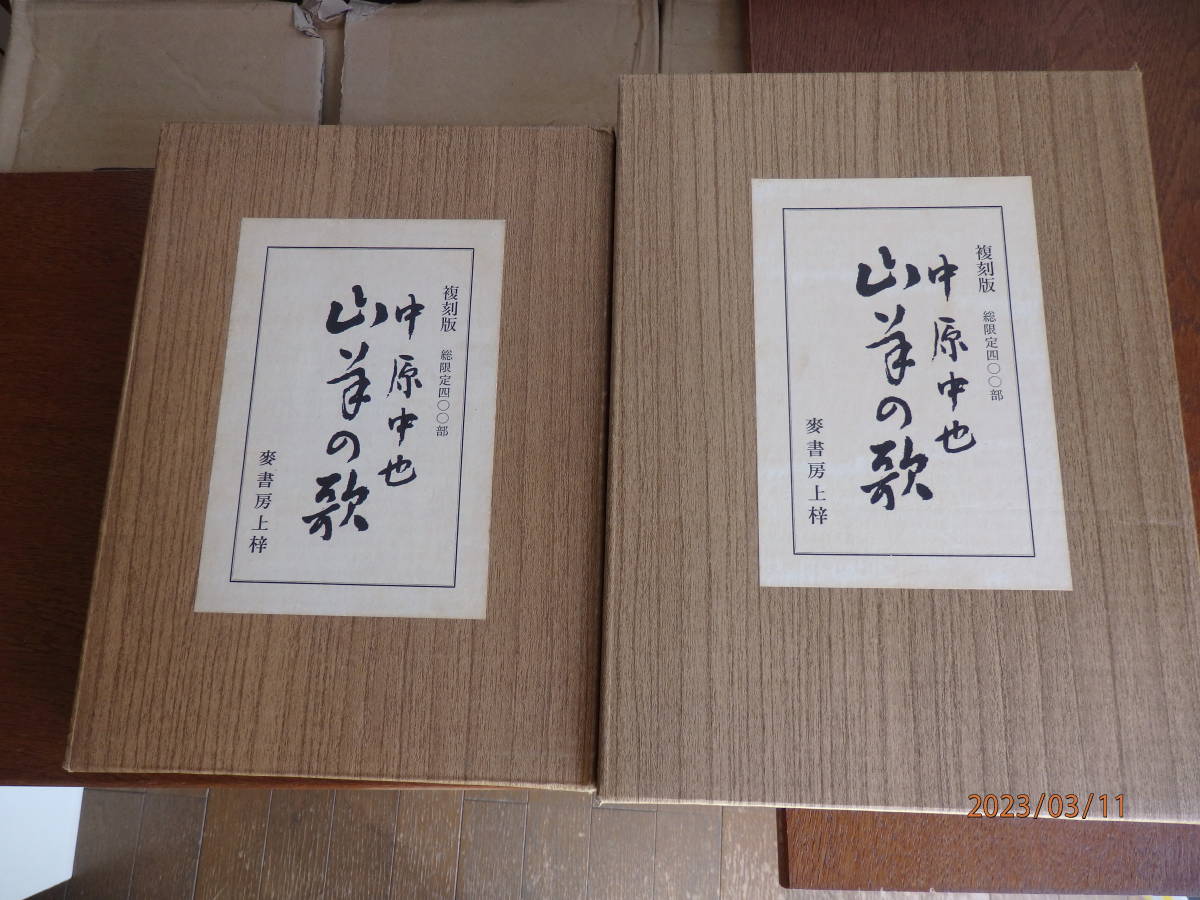 複刻版 総限定四〇〇部
中原中也
山羊の歌
麥書房上梓
複刻版 総限定四〇〇部
中原中也
山羊の歌
麥書房上梓
2023/03/11